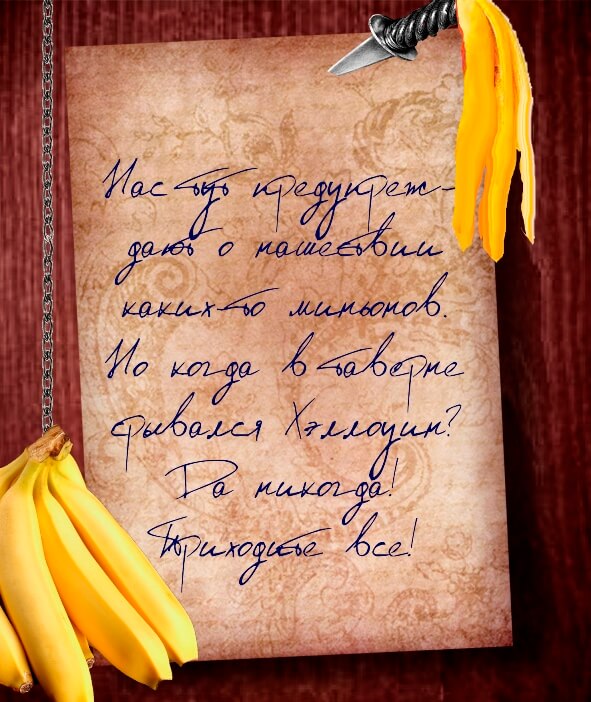 Нас тут предупреж-
дают о нашествии
каких-то миньонов.
Но когда в таверне
срывался Хэллоуин?
Да никогда!
Приходите все!